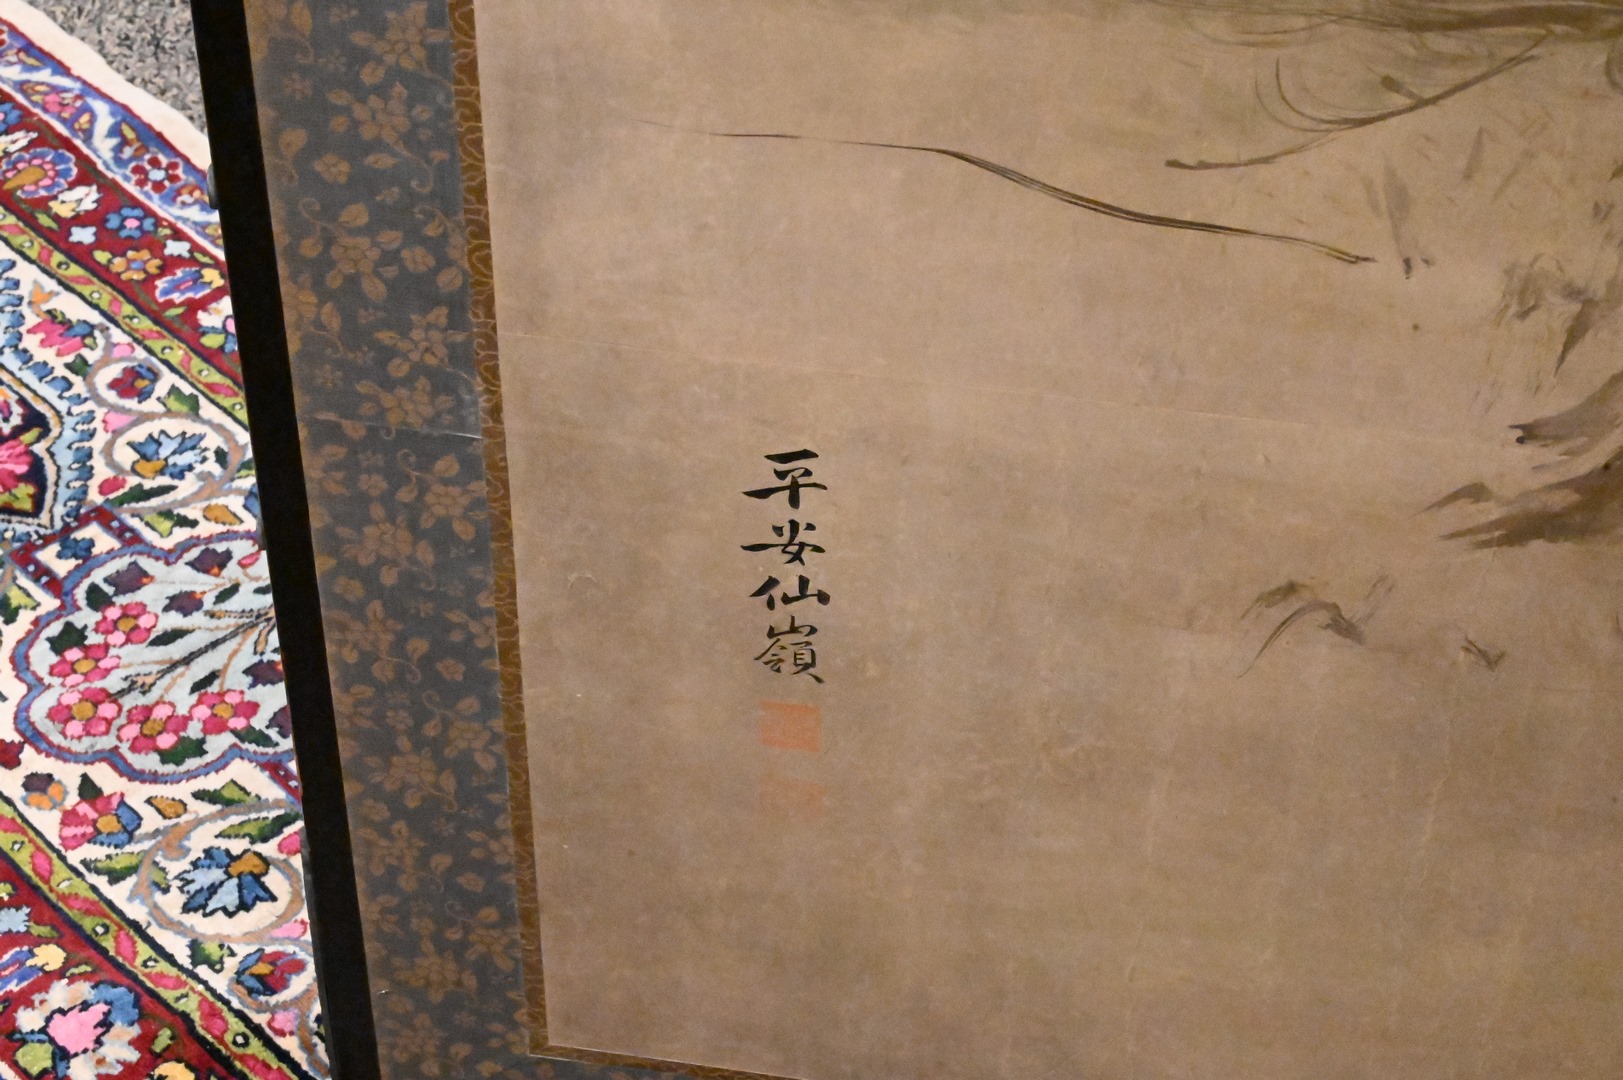 平安仙嶺